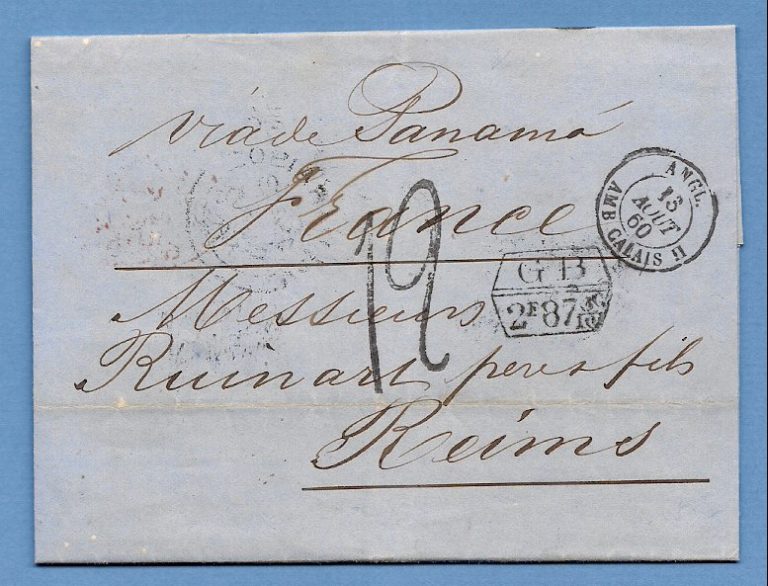 viá de Panamá
France
ANGL.
15
AOUT
60
AMB CALAIS II
12
GB
2F87 5/10
Messieurs
Ruinart pere & fils
Reims